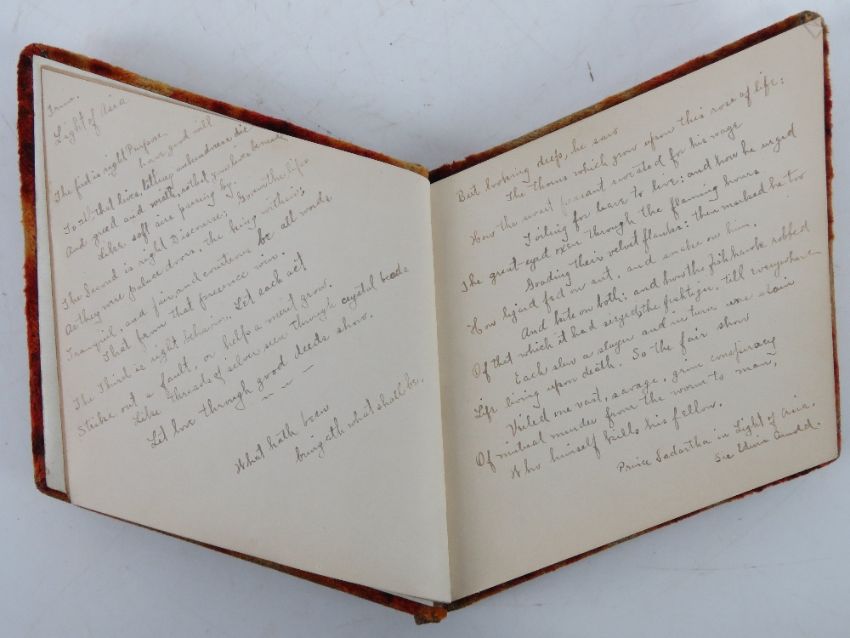 From.
Light of Asia
The first is right Purpose.
have good will
To all that lives, letting unkindness die
And greed and wrath, so that your lives be made
Like soft airs passing by.
The Second is right Discourse; Govern the lips
As they were palace doors, the King within;
Tranquil, and fair, and courteous be all words
That from that presence win.
The Third is right behavior. Let each act
Strike out a fault, or help a merit grow.
Like threads of silver seen through crystal beads
Let love through good deeds show.
What hath been
bringeth what shall be.
But looking deep, he saw
The thorns which grow upon this rose of life:
How the swart peasant sweated for his wage
Toiling for leave to live: and how he urged
The great-eyed oxen through the flaming hours
Goading their velvet flanks: then marked he too
How lizard fed on ant, and snake on him,
And kite on both; and how the fish hawk robbed
Of that which it had seized, the fish tiger, till everywhere
Each slew a slayer and in turn was slain
Life living upon death. So the fair show
Veiled one vast, savage, grim conspiracy
Of mutual murder from the worm to man,
Who himself kills his fellow.
Prince Sadartha in Light of Asia.
Sir Edwin Arnold.